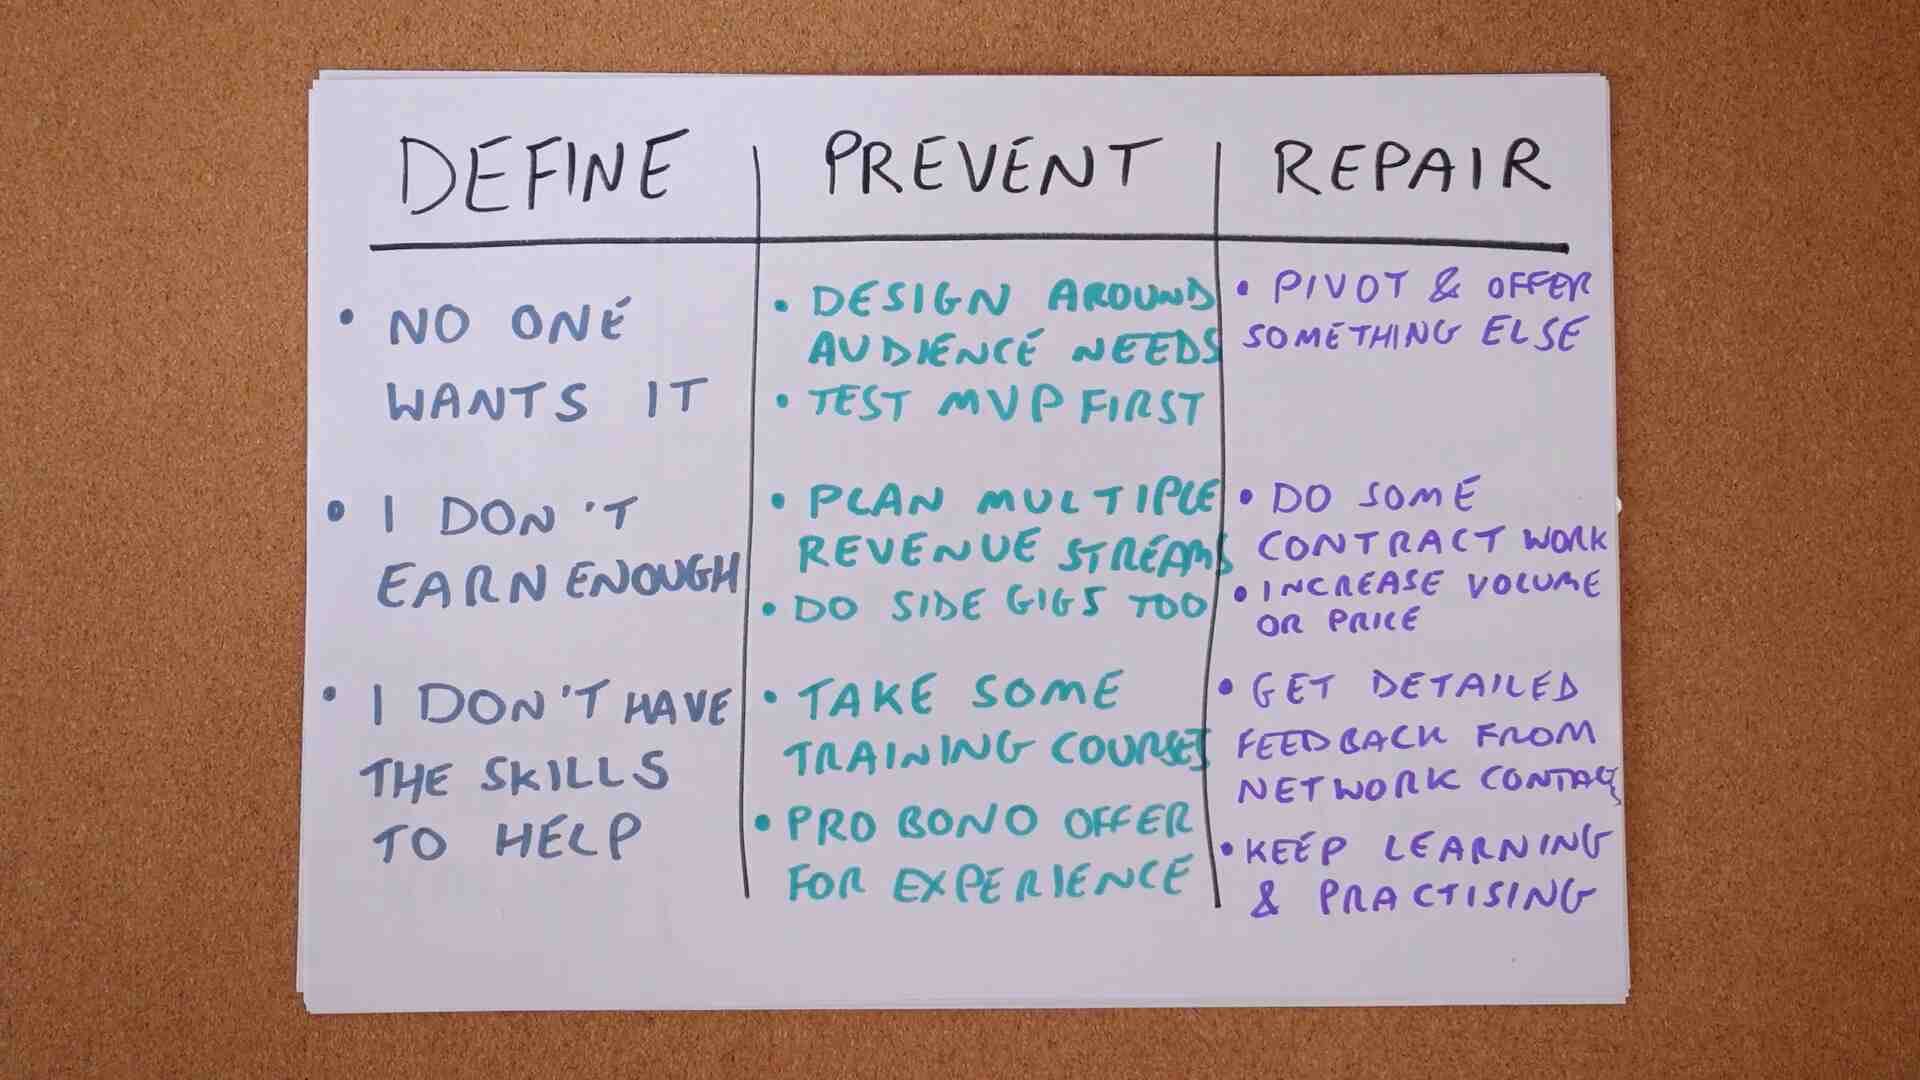 DEFINE
PREVENT
REPAIR
• NO ONE
WANTS IT
• DESIGN AROUND
AUDIENCE NEEDS
• TEST MVP FIRST
• PIVOT & OFFER
SOMETHING ELSE
• I DON'T
EARN ENOUGH
• PLAN MULTIPLE
REVENUE STREAMS
• DO SIDE GIGS TOO
• DO SOME
CONTRACT WORK
• INCREASE VOLUME
OR PRICE
• I DON'T HAVE
THE SKILLS
TO HELP
• TAKE SOME
TRAINING COURSES
• PRO BONO OFFER
FOR EXPERIENCE
• GET DETAILED
FEEDBACK FROM
NETWORK CONTACTS
• KEEP LEARNING
& PRACTISING